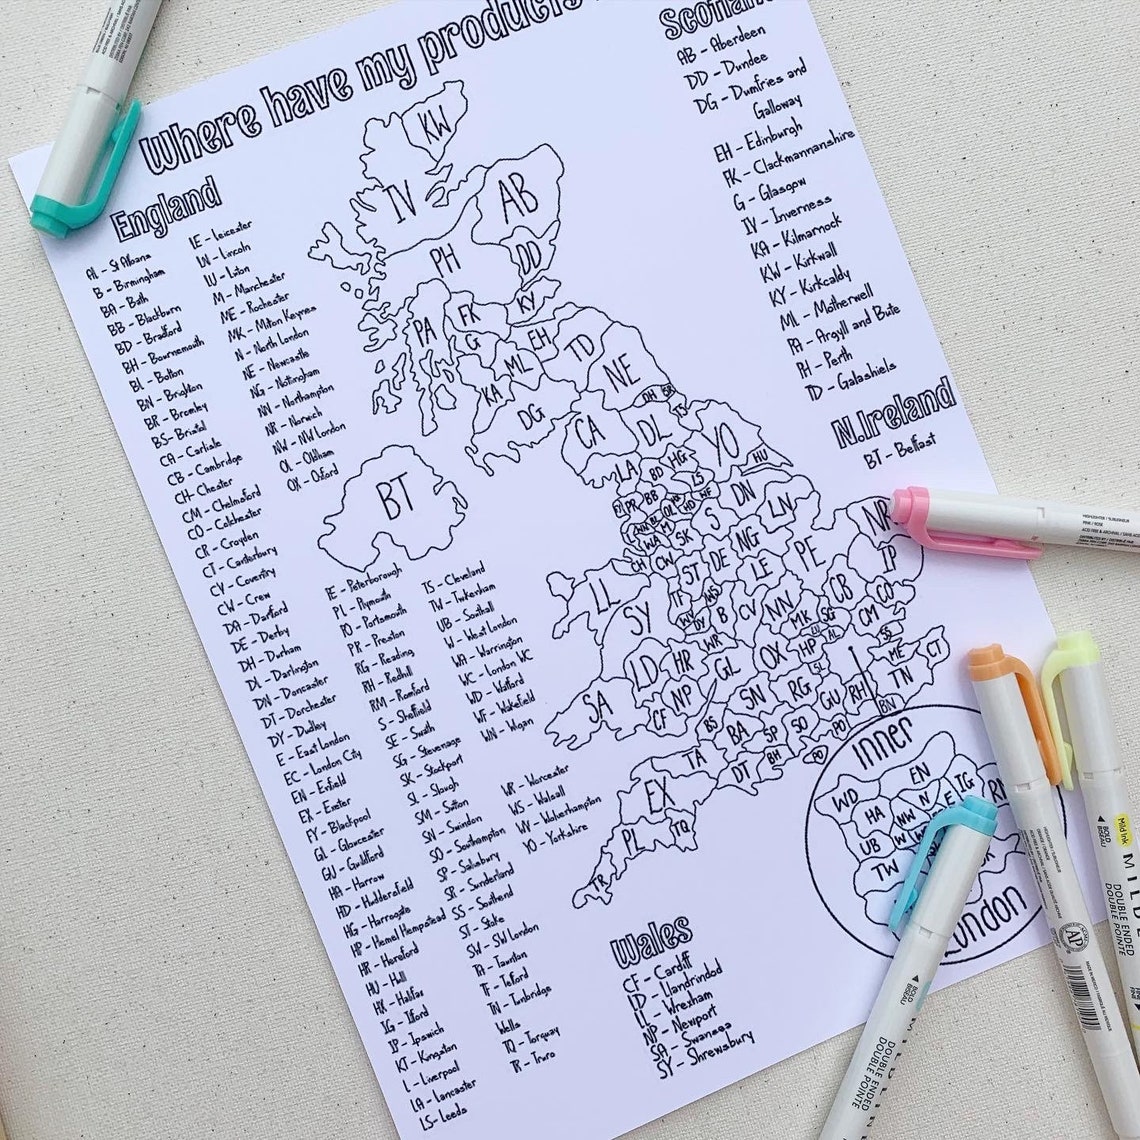 Where have my products
England
AL - St Albans
B - Birmingham
BA - Bath
BB - Blackburn
BD - Bradford
BH - Bournemouth
BL - Bolton
BN - Brighton
BR - Bromley
BS - Bristol
CA - Carlisle
CB - Cambridge
CH - Chester
CM - Chelmsford
CO - Colchester
CR - Croydon
CT - Canterbury
CV - Coventry
CW - Crew
DA - Dartford
DE - Derby
DH - Durham
DL - Darlington
DN - Doncaster
DT - Dorchester
DY - Dudley
E - East London
EC - London City
EN - Enfield
EX - Exeter
FY - Blackpool
GL - Gloucester
GU - Guildford
HA - Harrow
HD - Huddersfield
HG - Harrogate
HP - Hemel Hempstead
HR - Hereford
HU - Hull
HX - Halifax
IG - Ilford
IP - Ipswich
KT - Kingston
L - Liverpool
LA - Lancaster
LS - Leeds
LE - Leicester
LN - Lincoln
LU - Luton
M - Manchester
ME - Rochester
MK - Milton Keynes
N - North London
NE - Newcastle
NG - Nottingham
NN - Northampton
NR - Norwich
NW - NW London
OL - Oldham
OX - Oxford
PE - Peterborough
PL - Plymouth
PO - Portsmouth
PR - Preston
RG - Reading
RH - Redhill
RM - Romford
S - Sheffield
SE - South
SG - Stevenage
SK - Stockport
SL - Slough
SM - Sutton
SN - Swindon
SO - Southampton
SP - Salisbury
SR - Sunderland
SS - Southend
ST - Stoke
SW - SW London
TA - Taunton
TF - Telford
TN - Tunbridge
Wells
TQ - Torquay
TR - Truro
TS - Cleveland
TW - Twickenham
UB - Southall
W - West London
WA - Warrington
WC - London WC
WD - Watford
WF - Wakefield
WN - Wigan
WR - Worcester
WS - Walsall
WV - Wolverhampton
YO - Yorkshire
Scotland
AB - Aberdeen
DD - Dundee
DG - Dumfries and
Galloway
EH - Edinburgh
FK - Clackmannanshire
G - Glasgow
IV - Inverness
KA - Kilmarnock
KW - Kirkwall
KY - Kirkcaldy
ML - Motherwell
PA - Argyll and Bute
PH - Perth
TD - Galashiels
N.Ireland
BT - Belfast
Wales
CF - Cardiff
LD - Llandrindod
LL - Wrexham
NP - Newport
SA - Swansea
SY - Shrewsbury
KW
IV
AB
PH
DD
PA
FK
KY
G
EH
ML
TD
NE
KA
DG
DH
SR
TS
CA
DL
YO
BT
LA
BD
HG
HU
PR
BB
LS
DN
LN
S
SK
WA
CH
CW
ST
DE
NG
PE
NR
IP
LL
SY
TF
LE
CB
CO
B
CV
NN
MK
SG
CM
WR
LD
HR
GL
OX
HP
AL
SS
ME
CT
SL
TN
SA
CF
NP
SN
RG
GU
RH
BN
BS
BA
SP
SO
PO
TA
DT
BH
EX
PL
TQ
TR
Inner
London
EN
WD
HA
NW
N
E
IG
UB
W
TW
Mild Ink
BOLD
BISEAU
DOUBLE ENDED
DOUBLE POINTE
BOLD
BISEAU
DOUBLE ENDED
DOUBLE POINTE
AP